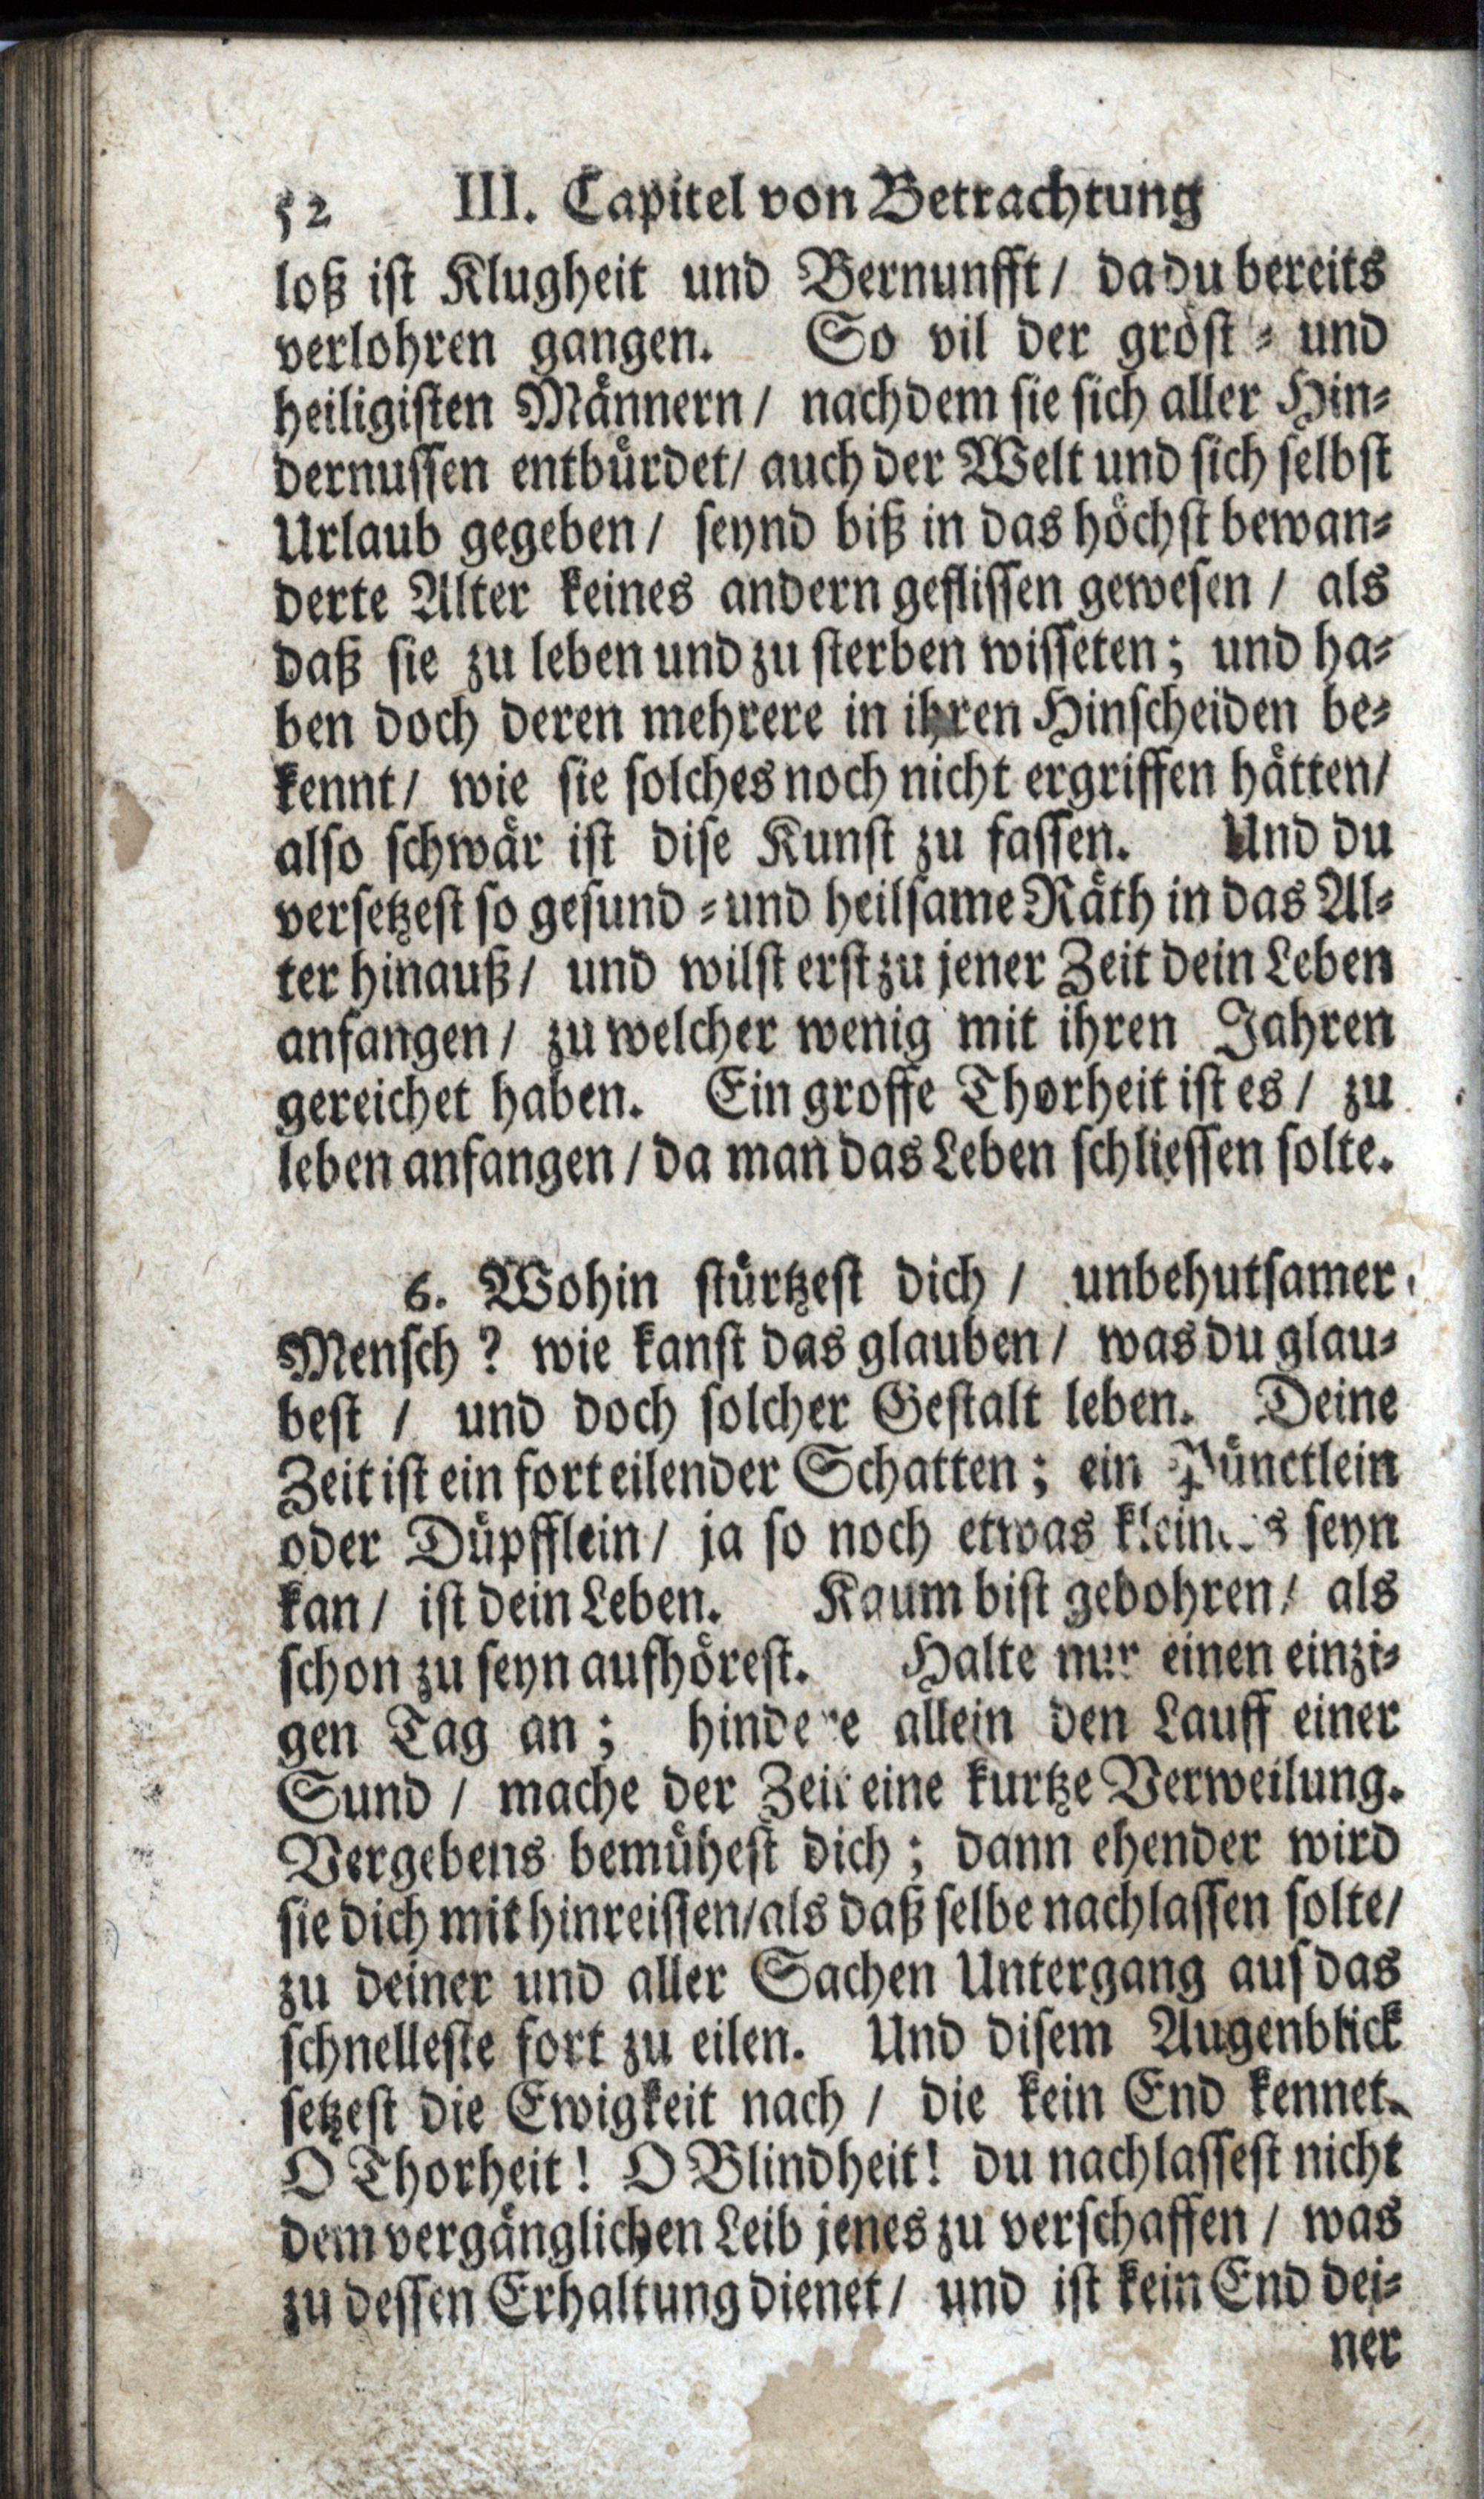 52 III. Capitel von Betrachtung
loß ist Klugheit und Vernunfft / da du bereits
verlohren gangen. So vil der gröst- und
heiligisten Männern / nachdem sie sich aller Hin-
dernussen entbürdet / auch der Welt und sich selbst
Urlaub gegeben / seynd biß in das höchst bewan-
derte Alter keines andern geflissen gewesen / als
daß sie zu leben und zu sterben wisseten; und ha-
ben doch deren mehrere in ihren Hinscheiden be-
kennt / wie sie solches noch nicht ergriffen hätten /
also schwär ist dise Kunst zu fassen. Und du
versetzest so gesund- und heilsame Räth in das Al-
ter hinauß / und wilst erst zu jener Zeit dein Leben
anfangen / zu welcher wenig mit ihren Jahren
gereichet haben. Ein grosse Thorheit ist es / zu
leben anfangen / da man das Leben schliessen solte.
6. Wohin stürtzest dich / unbehutsamer
Mensch? wie kanst das glauben / was du glau-
best / und doch solcher Gestalt leben. Deine
Zeit ist ein fort eilender Schatten; ein Pünctlein
oder Düpfflein / ja so noch etwas seyn
kan / ist dein Leben. Kaum bist gebohren / als
schon zu seyn aufhörest. Halte nur einen einzi-
gen Tag an; hindere allein den Lauff einer
Sund / mache der Zeit eine kurtze Verweilung.
Vergebens bemühest dich; dann ehender wird
sie dich mit hinreissen / als daß selbe nachlassen solte /
zu deiner und aller Sachen Untergang auf das
schnelleste fort zu eilen. Und disem Augenblick
setzest die Ewigkeit nach / die kein End kennet.
O Thorheit! O Blindheit! du nachlassest nicht
dem vergänglichen Leib jenes zu verschaffen / was
zu dessen Erhaltung dienet / und ist kein End dei-
ner